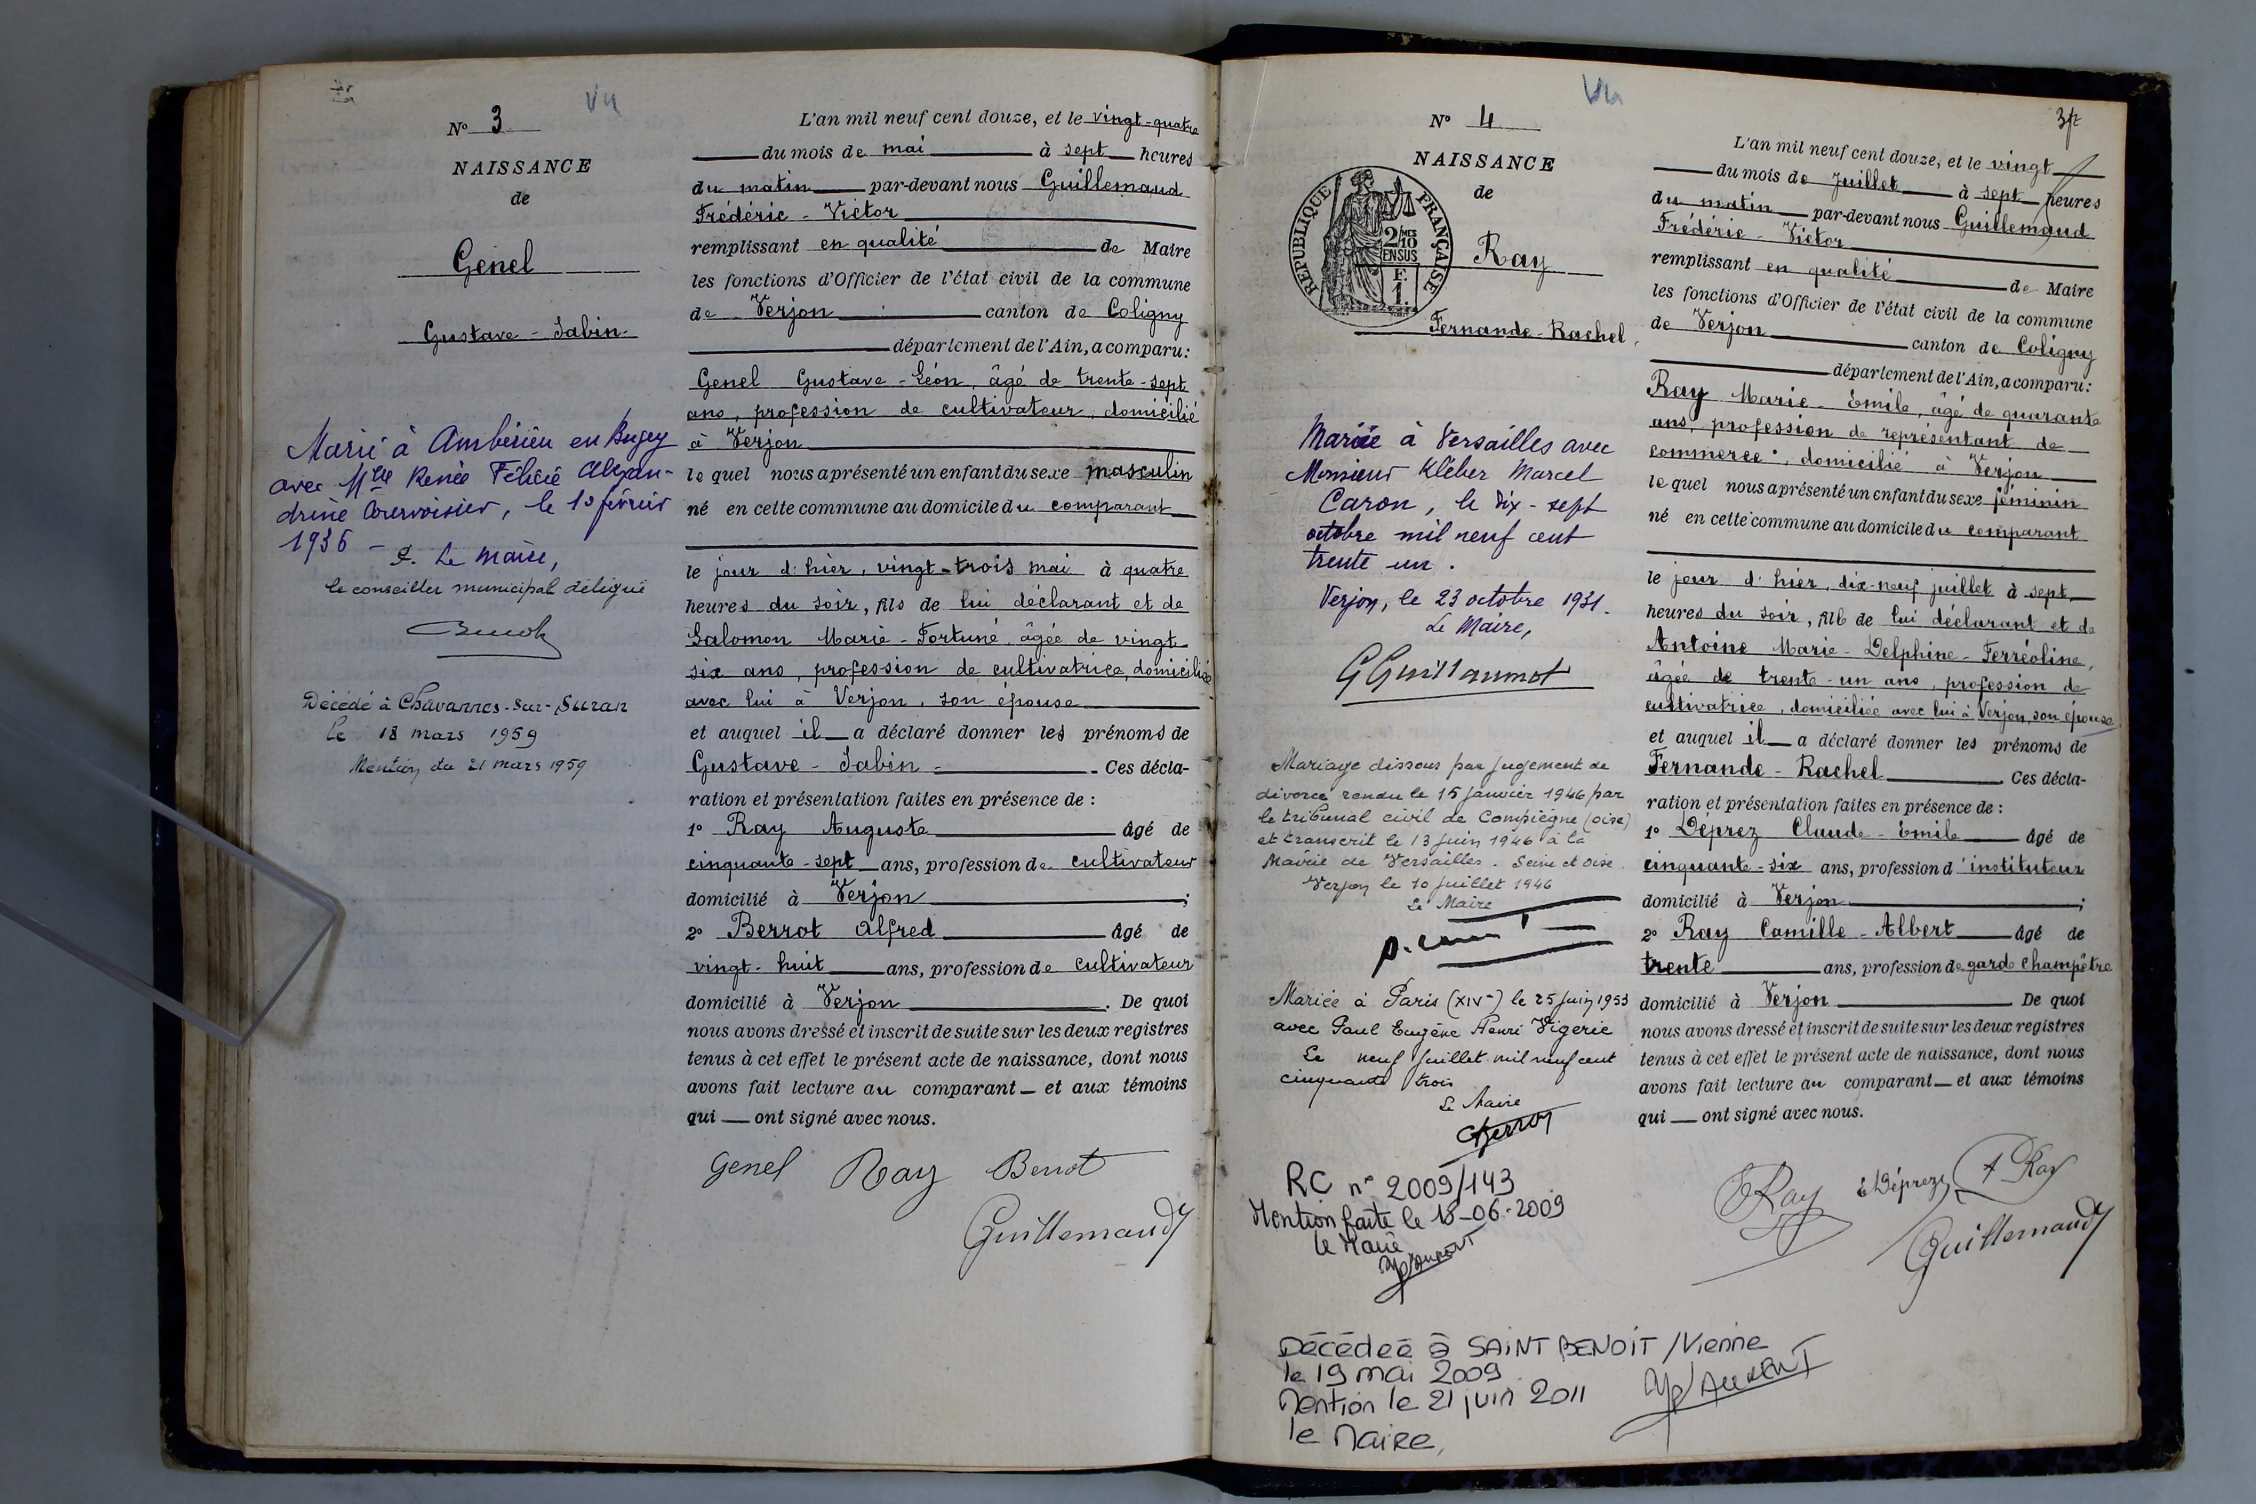 Vu
N° 3
NAISSANCE
de
Genel
Gustave - Sabin
Marié à Ambérieu en Bugey
avec Mlle Renée Félicie Alexan-
drine Courvoisier, le 1 février
1936 -
P. Le Maire,
le conseiller municipal délégué
Décédé à Chavannes-sur-Suran
le 18 mars 1959
Mention du 21 mars 1959
L'an mil neuf cent douze, et le vingt-quatre
du mois de mai à sept heures
du matin par-devant nous Guillemaud
Frédéric - Victor
remplissant en qualité de Maire
les fonctions d'Officier de l'état civil de la commune
de Verjon canton de Coligny
département de l'Ain, a comparu:
Genel Gustave - Léon, âgé de trente-sept
ans, profession de cultivateur, domicilié
à Verjon
le quel nous a présenté un enfant du sexe masculin
né en cette commune au domicile du comparant
le jour d'hier, vingt-trois mai à quatre
heures du soir, fils de lui déclarant et de
Salomon Marie - Fortuné, âgée de vingt-
six ans, profession de cultivatrice, domiciliée
avec lui à Verjon, son épouse
et auquel il a déclaré donner les prénoms de
Gustave - Sabin - Ces décla-
ration et présentation faites en présence de :
1° Ray Auguste âgé de
cinquante-sept ans, profession de cultivateur
domicilié à Verjon ;
2° Berrot Alfred âgé de
vingt-huit ans, profession de cultivateur
domicilié à Verjon . De quoi
nous avons dressé et inscrit de suite sur les deux registres
tenus à cet effet le présent acte de naissance, dont nous
avons fait lecture au comparant et aux témoins
qui ont signé avec nous.
Genel Ray Berrot
Guillemaud
Vu
N° 4
NAISSANCE
de
REPUBLIQUE FRANÇAISE
2/10 MES
EN SUS
F.
1.
Ray
Fernande - Rachel
Mariée à Versailles avec
Monsieur Kléber Marcel
Caron, le dix-sept
octobre mil neuf cent
trente un.
Verjon, le 23 octobre 1931.
Le Maire,
G Guillaumot
Mariage dissous par jugement de
divorce rendu le 15 janvier 1946 par
le tribunal civil de Compiègne (oise)
et transcrit le 13 juin 1946 à la
Mairie de Versailles. Seine et Oise.
Verjon le 10 juillet 1946
Le Maire
Mariée à Paris (XIVe) le 25 juin 1953
avec Paul Eugène Henri Vigerie
Le neuf juillet mil neuf cent
cinquante trois
Le Maire
RC n° 2009/143
Mention faite le 18-06-2009
le Maire
Décédée à SAINT BENOIT /Vienne
le 19 mai 2009
Mention le 21 juin 2011
le Maire,
L'an mil neuf cent douze, et le vingt
du mois de Juillet à sept heures
du matin par-devant nous Guillemaud
Frédéric - Victor
remplissant en qualité de Maire
les fonctions d'Officier de l'état civil de la commune
de Verjon canton de Coligny
département de l'Ain, a comparu:
Ray Marie - Emile, âgé de quarante
ans, profession de représentant de
commerce, domicilié à Verjon
le quel nous a présenté un enfant du sexe féminin
né en cette commune au domicile du comparant
le jour d'hier, dix-neuf juillet à sept
heures du soir, fille de lui déclarant et de
Antoine Marie - Delphine - Ferréoline,
âgée de trente-un ans, profession de
cultivatrice, domiciliée avec lui à Verjon, son épouse
et auquel il a déclaré donner les prénoms de
Fernande - Rachel Ces décla-
ration et présentation faites en présence de :
1° Déprez Claude - Emile âgé de
cinquante-six ans, profession d'instituteur
domicilié à Verjon ;
2° Ray Camille - Albert âgé de
trente ans, profession de garde champêtre
domicilié à Verjon De quoi
nous avons dressé et inscrit de suite sur les deux registres
tenus à cet effet le présent acte de naissance, dont nous
avons fait lecture au comparant et aux témoins
qui ont signé avec nous.
E Ray E Déprez A Ray
Guillemaud